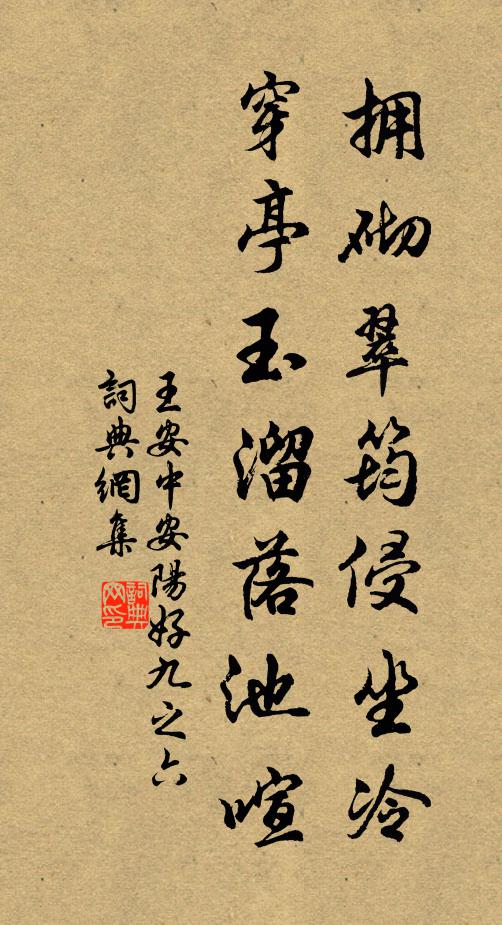 拥砌翠筠侵坐冷
穿亭玉溜落池喧
王安中安陽好九之六
詞典網集
詞典网印